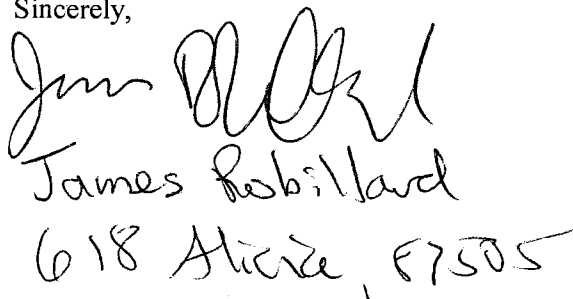 Sincerely,
James Robillard
618 Alicia, 87505